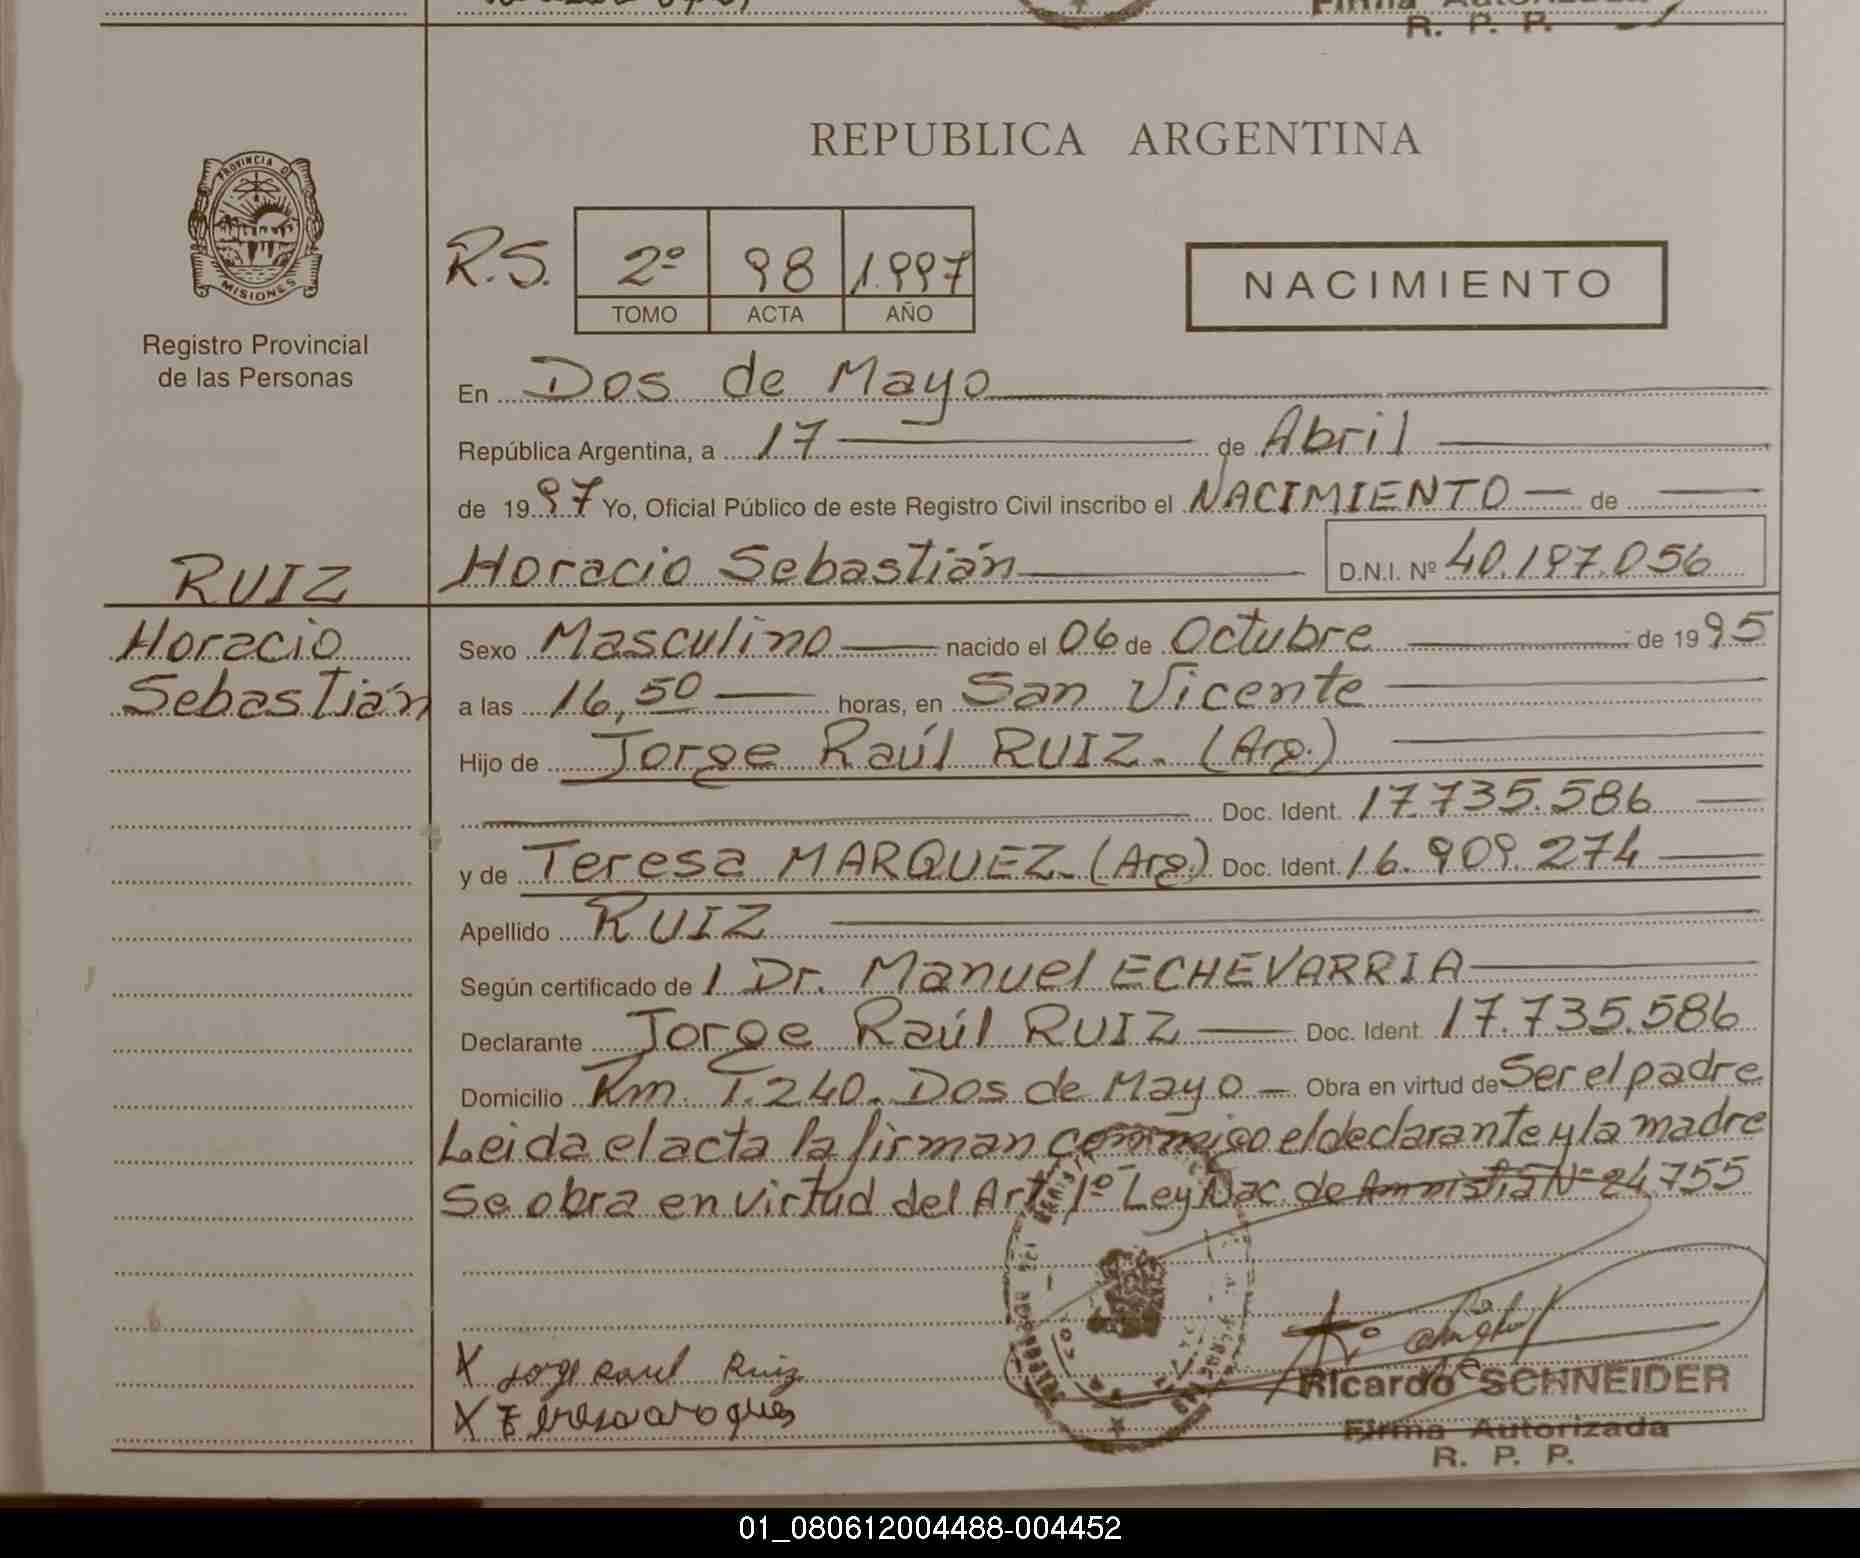 R. P. P.
PROVINCIA DE
MISIONES
Registro Provincial
de las Personas
REPUBLICA ARGENTINA
R.S. 2º 98 1.997
TOMO ACTA AÑO
NACIMIENTO
En Dos de Mayo
República Argentina, a 17 de Abril
de 1997 Yo, Oficial Público de este Registro Civil inscribo el NACIMIENTO de
RUIZ Horacio Sebastián D.N.I. Nº 40.197.056
Horacio Sexo Masculino nacido el 06 de Octubre de 1995
Sebastián a las 16,50 horas, en San Vicente
Hijo de Jorge Raúl RUIZ. (Arg.)
Doc. Ident. 17.735.586
y de Teresa MARQUEZ. (Arg.) Doc. Ident. 16.909.274
Apellido RUIZ
Según certificado de 1 Dr. Manuel ECHEVARRIA
Declarante Jorge Raúl RUIZ Doc. Ident. 17.735.586
Domicilio Km. 1.240. Dos de Mayo Obra en virtud de Ser el padre
Leida el acta la firman conmigo el declarante y la madre
Se obra en virtud del Art. 1º Ley Nac. de Amnistia Nº 24.755
X Jorge Raul Ruiz
X
Ricardo SCHNEIDER
Firma Autorizada
R. P. P.
01_080612004488-004452